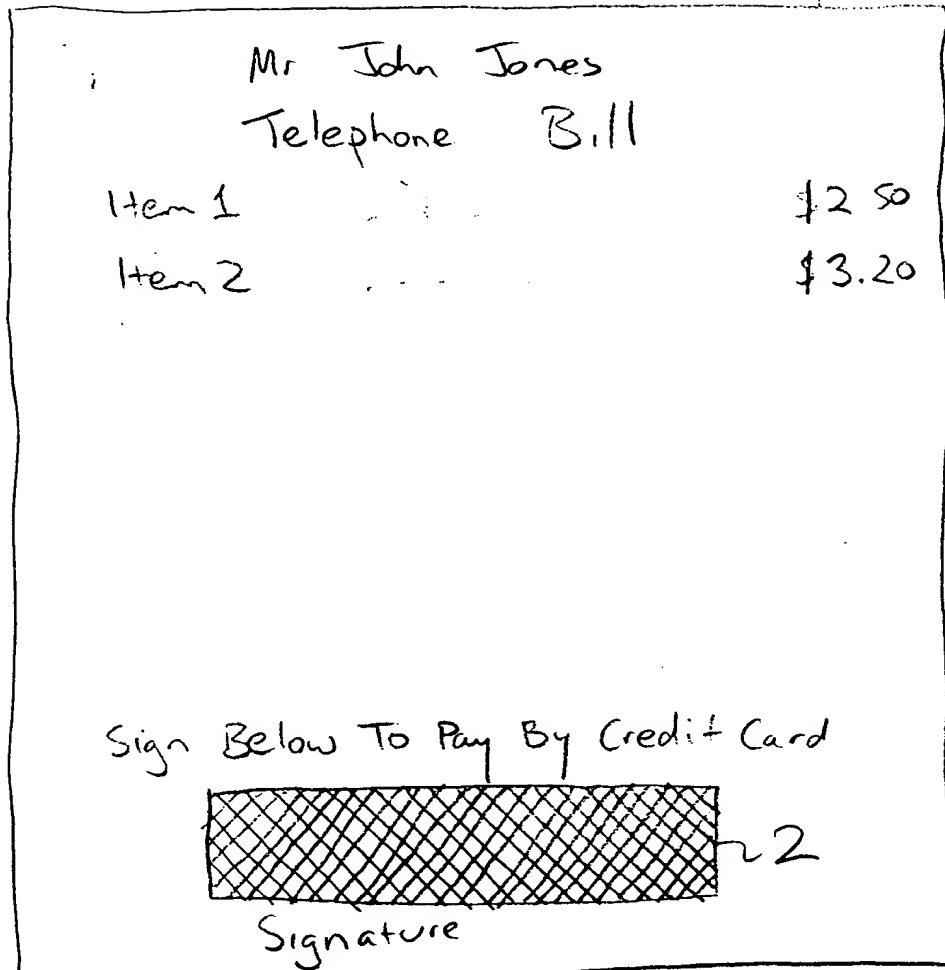 Mr John Jones
Telephone Bill
Item 1 $2 50
Item 2 . . . $3.20
Sign Below To Pay By Credit Card
2
Signature